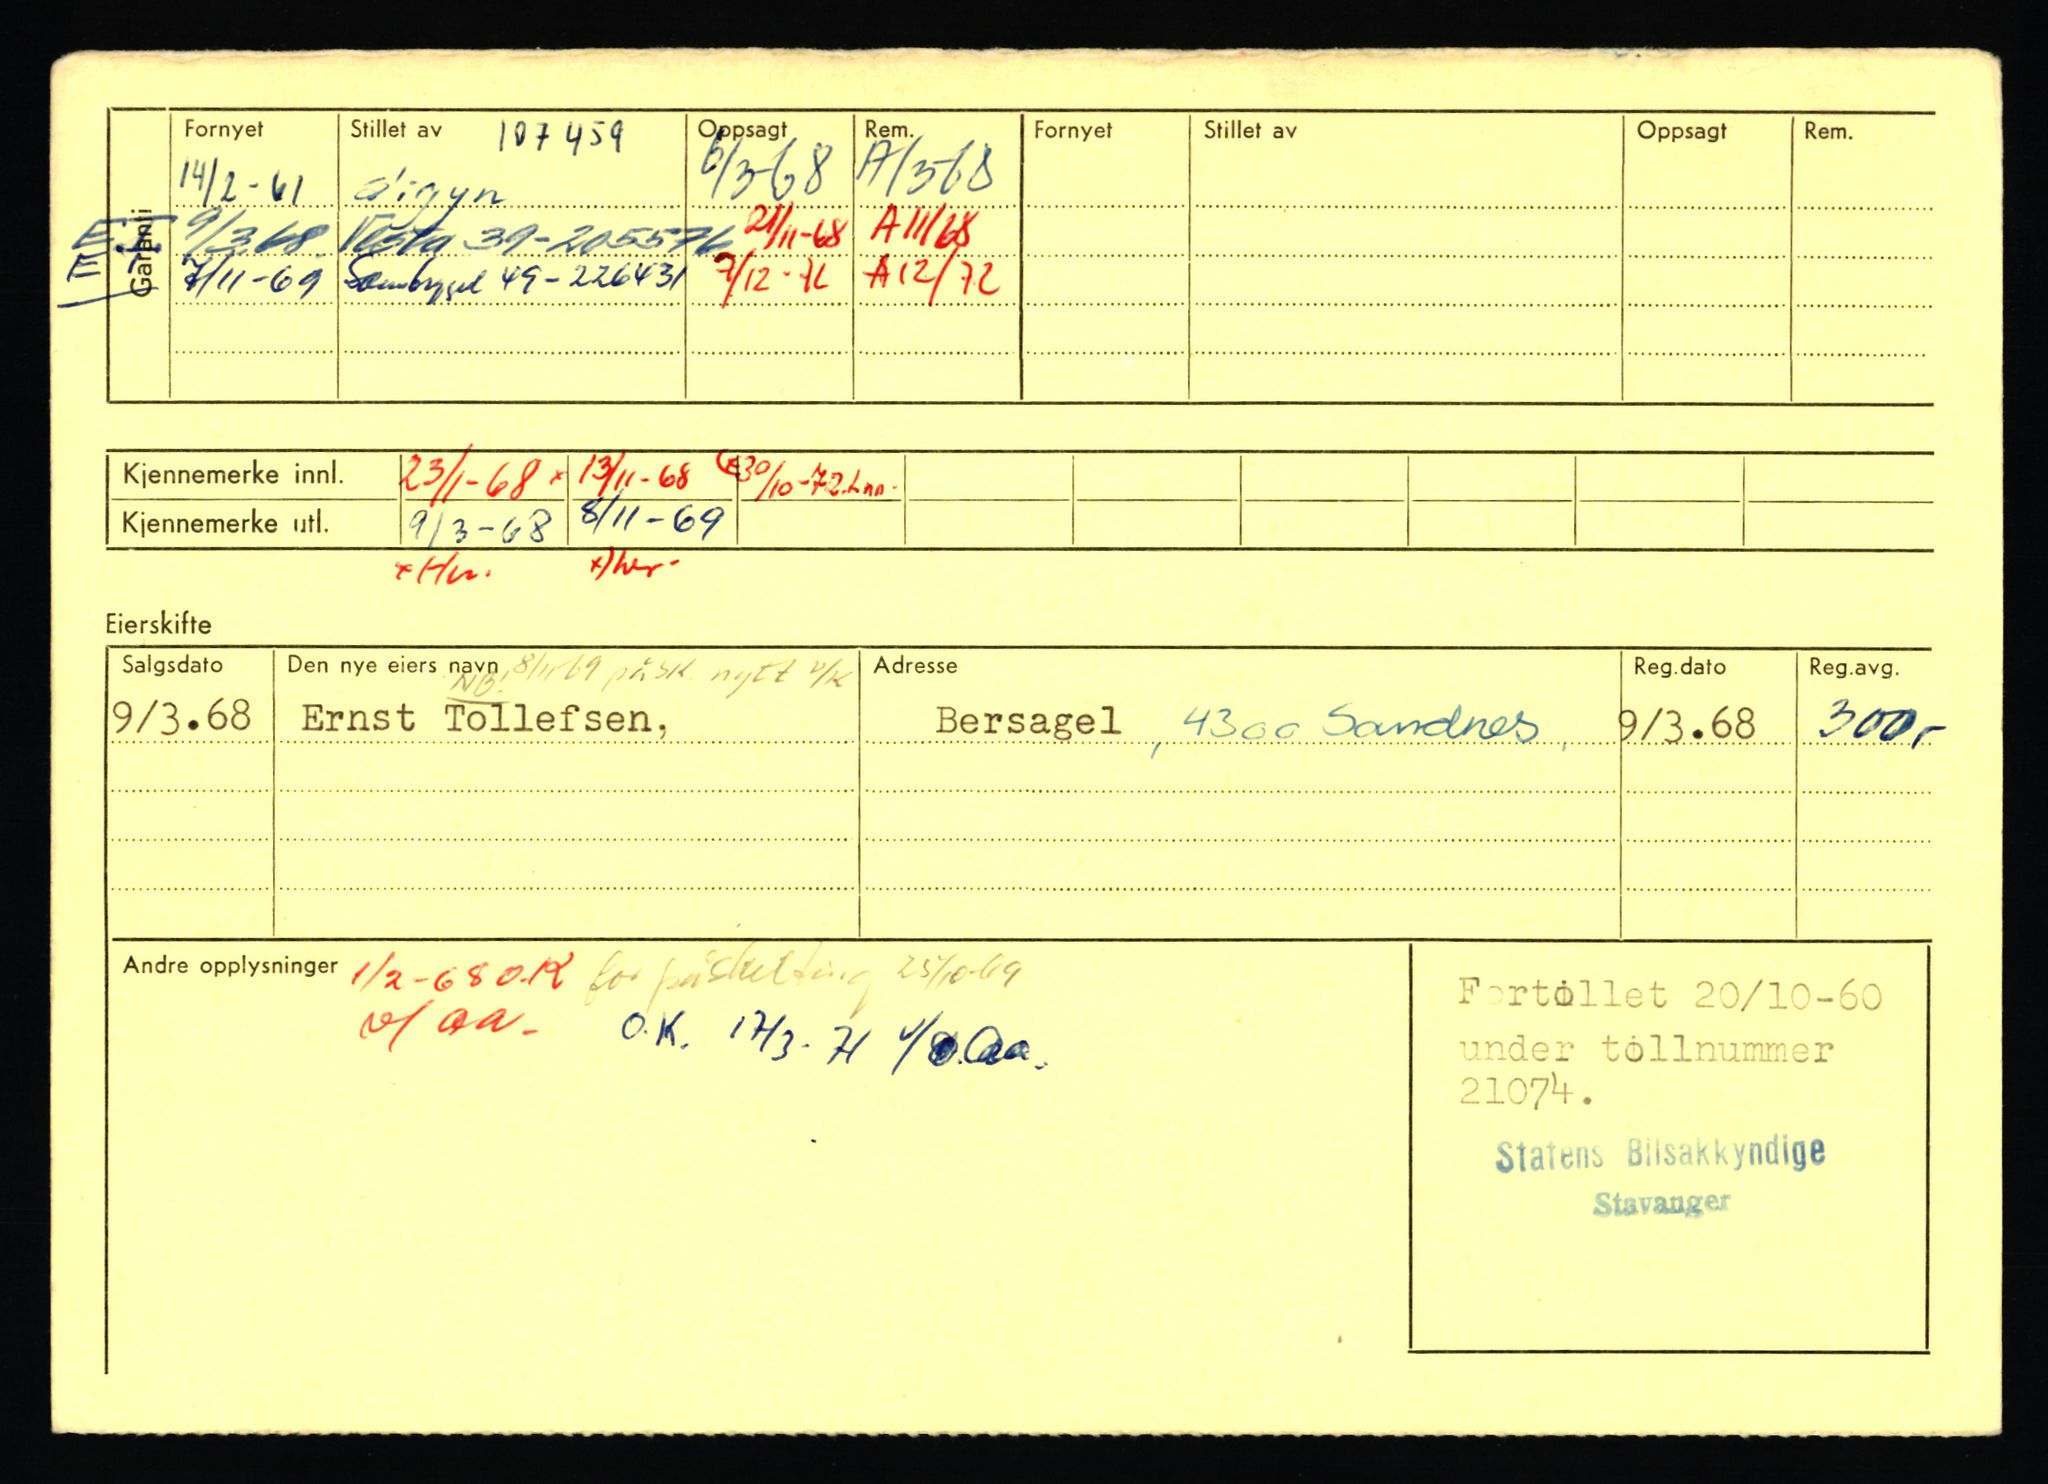 Garanti
Fornyet Stillet av 107459 Oppsagt Rem. Fornyet Stillet av Oppsagt Rem.
14/2-61 Sigyn 6/3-68 A/3-68
9/3.68. Vesta 39-205576 21/11-68 A 11/68
7/11-69 49-226431 7/12-72 A 12/72
Kjennemerke innl. 23/1-68 x 13/11-68 30/10-72.
Kjennemerke utl. 9/3-68 8/11-69
Eierskifte
Salgsdato Den nye eiers navn Adresse Reg.dato Reg.avg.
NB! 8/11-69 påsk. nytt v/k
9/3.68 Ernst Tollefsen, Bersagel, 4300 Sandnes, 9/3.68 300,-
Andre opplysninger 1/2-68 O.K for påskilting 25/10-69
v/ aa- O.K. 17/3-71
Fortollet 20/10-60
under tollnummer
21074.
Statens Bilsakkyndige
Stavanger